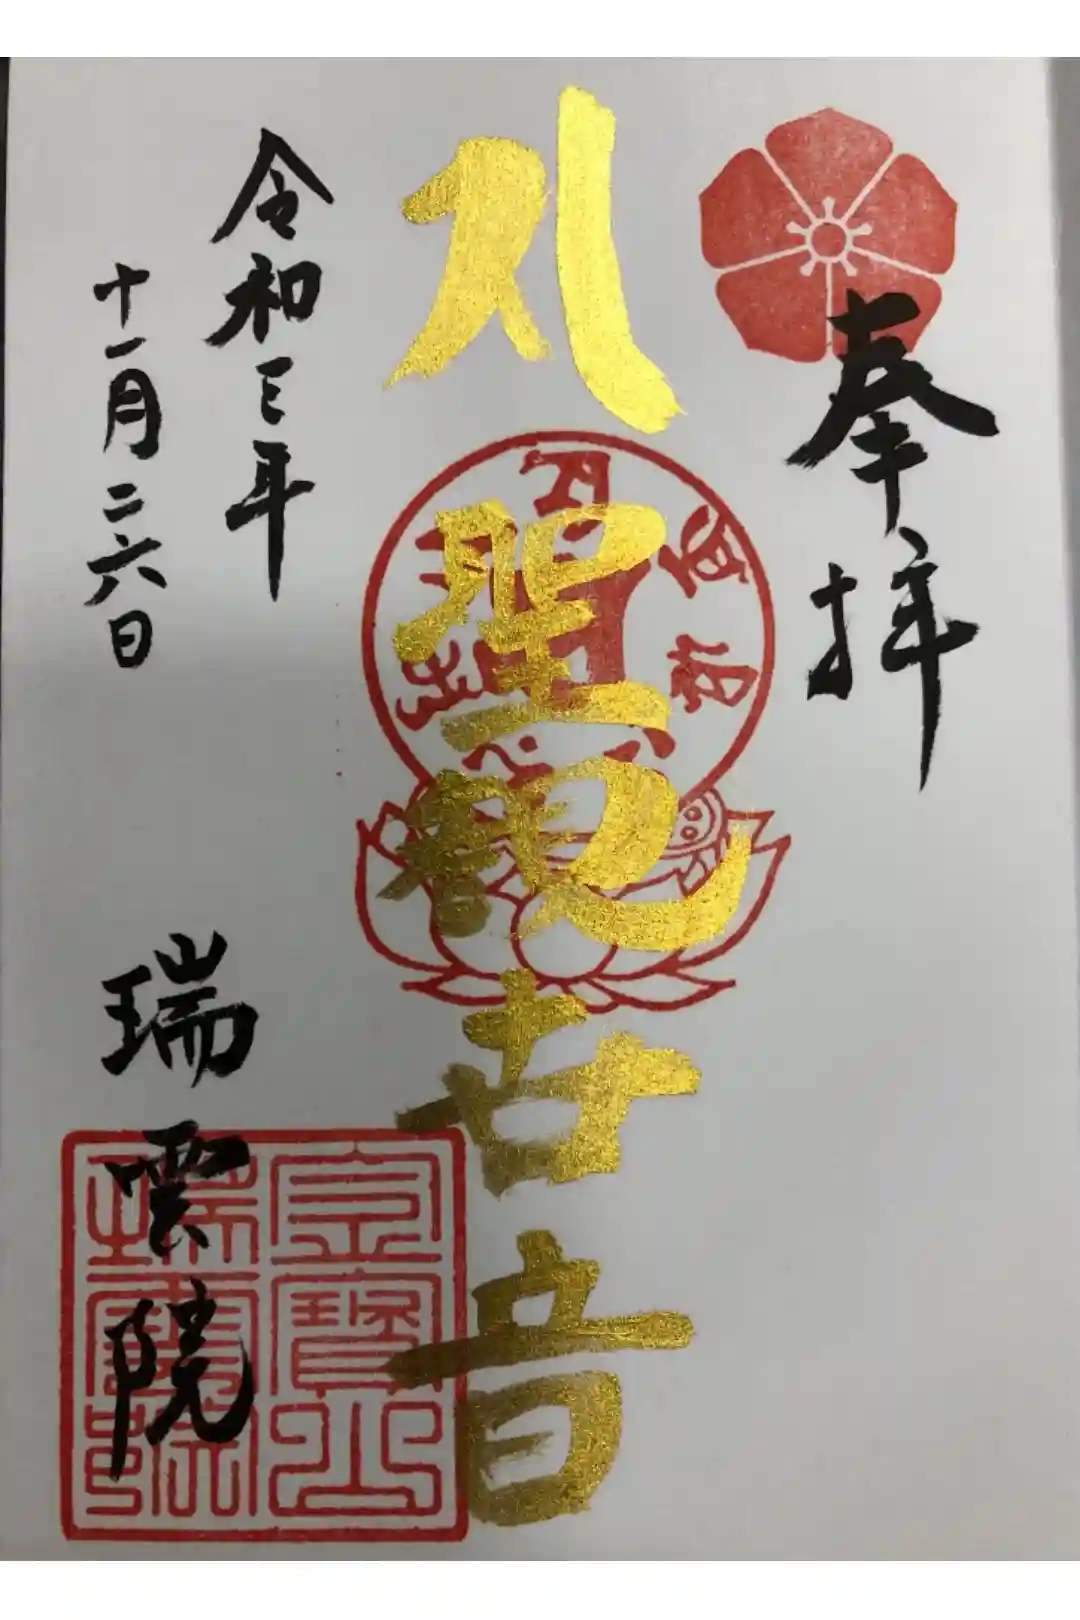 奉拝
聖観世音
令和三年
十一月二六日
瑞雲院
瑞雲院